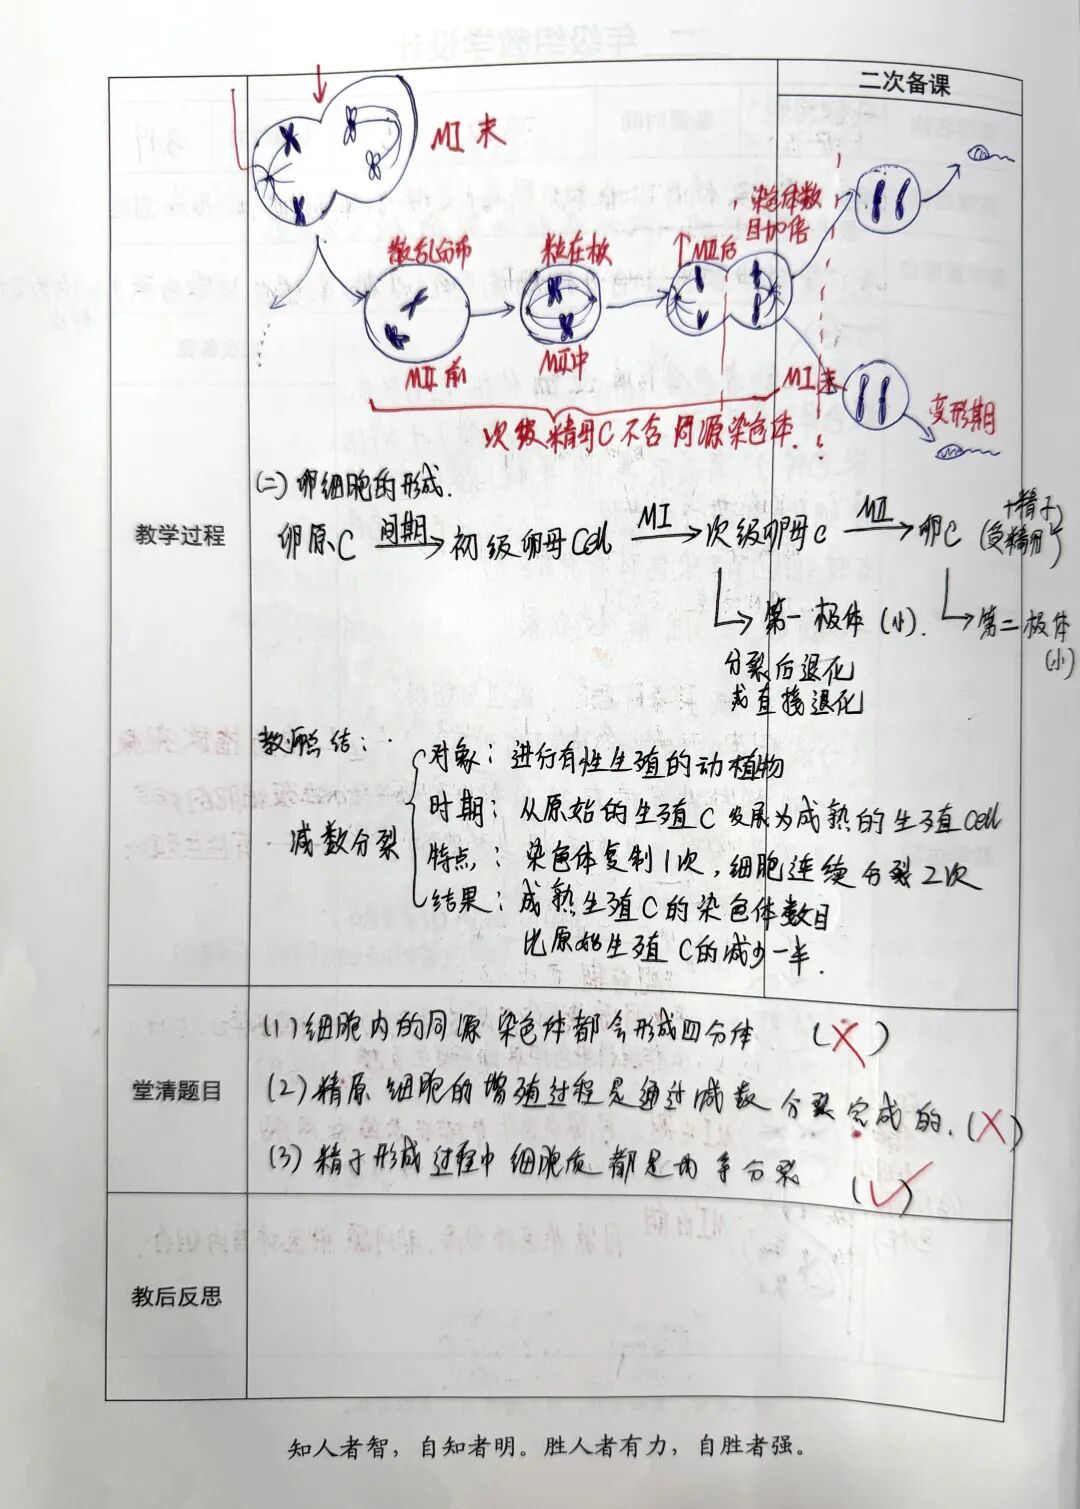 二次备课
MI 末
散乱分布
粒在板
MII后
染色体数
目加倍
MII前
MII中
MI末
变形期
次级精母C不含同源染色体.
教学过程
(二) 卵细胞的形成.
卵原C 间期→ 初级卵母Cell MI→ 次级卵母C MII→ 卵C
+精子
(受精卵)
第一极体(小). 第二极体
(小)
分裂后退化
或直接退化
教师总结:
减数分裂
对象: 进行有性生殖的动植物
时期: 从原始的生殖C发展为成熟的生殖Cell
特点: 染色体复制1次,细胞连续分裂2次
结果: 成熟生殖C的染色体数目
比原始生殖C的减少一半.
堂清题目
(1)细胞内的同源染色体都会形成四分体 (X)
(2)精原细胞的增殖过程是通过减数分裂完成的.(X)
(3)精子形成过程中细胞质都是均等分裂 (√)
教后反思
知人者智，自知者明。胜人者有力，自胜者强。